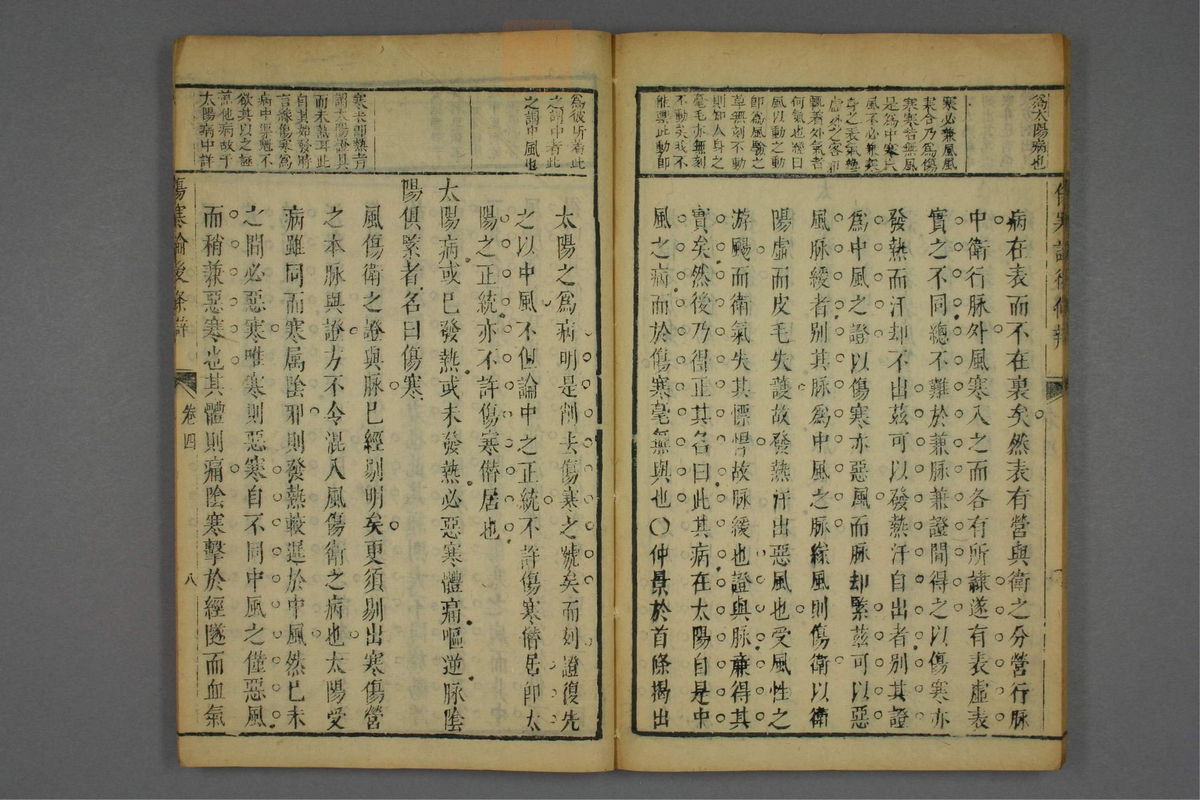 為太陽病也
寒必兼風風
寒合乃為傷
寒寒若無風
是為中寒
風不必兼寒
身之表氣
虛外之客
何氣也經曰
風以動之動
即為風驗之
草無刻不動
則知人身之
毫毛亦無刻
不動矣或不
能禦此動即
傷寒論後條辨
病在表而不在裏矣然表有營與衛之分營行脉
中衛行脉外風寒入之而各有所隸遂有表虛表
實之不同總不難於兼脉兼證間得之以傷寒亦
發熱而汗却不出茲可以發熱汗自出者別其證
為中風之證以傷寒亦惡風而脉却緊茲可以惡
風脉緩者別其脉為中風之脉緣風則傷衛以衛
陽虛而皮毛失護故發熱汗出惡風也受風性之
游颺而衛氣失其慓悍故脉緩也證與脉兼得其
實矣然後乃得正其名曰此其病在太陽自是中
風之病而於傷寒毫無與也〇仲景於首條揭出
為彼所著此
之謂中者此
之謂中風也
寒未即熱者
謂太陽證具
而未熱耳此
自其始發時
言緣傷寒為
病中罪魁不
欲其以之誣
罪他病故于
太陽病中詳
太陽之為病明是削去傷寒之號矣而列證復先
之以中風不但論中之正統不許傷寒僭居即太
陽之正統亦不許傷寒僭居也
太陽病或已發熱或未發熱必惡寒體痛嘔逆脉陰
陽俱緊者名曰傷寒
風傷衛之證與脉已經剔明矣更須剔出寒傷營
之本脉與證方不令混入風傷衛之病也太陽受
病雖同而寒属陰邪則發熱較遲於中風然已未
之間必惡寒唯寒則惡寒自不同中風之僅惡風
而稍兼惡寒也其體則痛陰寒擊於經隧而血氣
傷寒論後條辨
卷四
八